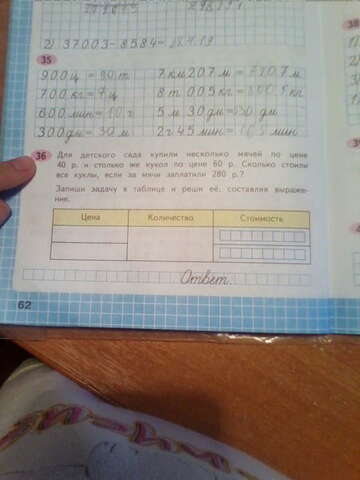 2) 37003-8584=
35
900 ц = 90 т 7 км 207 м = 7207 м
700 кг = 7 ц 8 т 005 кг = 8005 кг
600 мин = 10 ч 5 м 30 дм =
300 дм = 30 м 2 ч 45 мин = 165 мин
36 Для детского сада купили несколько мячей по цене
40 р. и столько же кукол по цене 60 р. Сколько стоили
все куклы, если за мячи заплатили 280 р.?
Запиши задачу в таблице и реши её, составляя выраже-
ние.
Цена Количество Стоимость
Ответ:
62